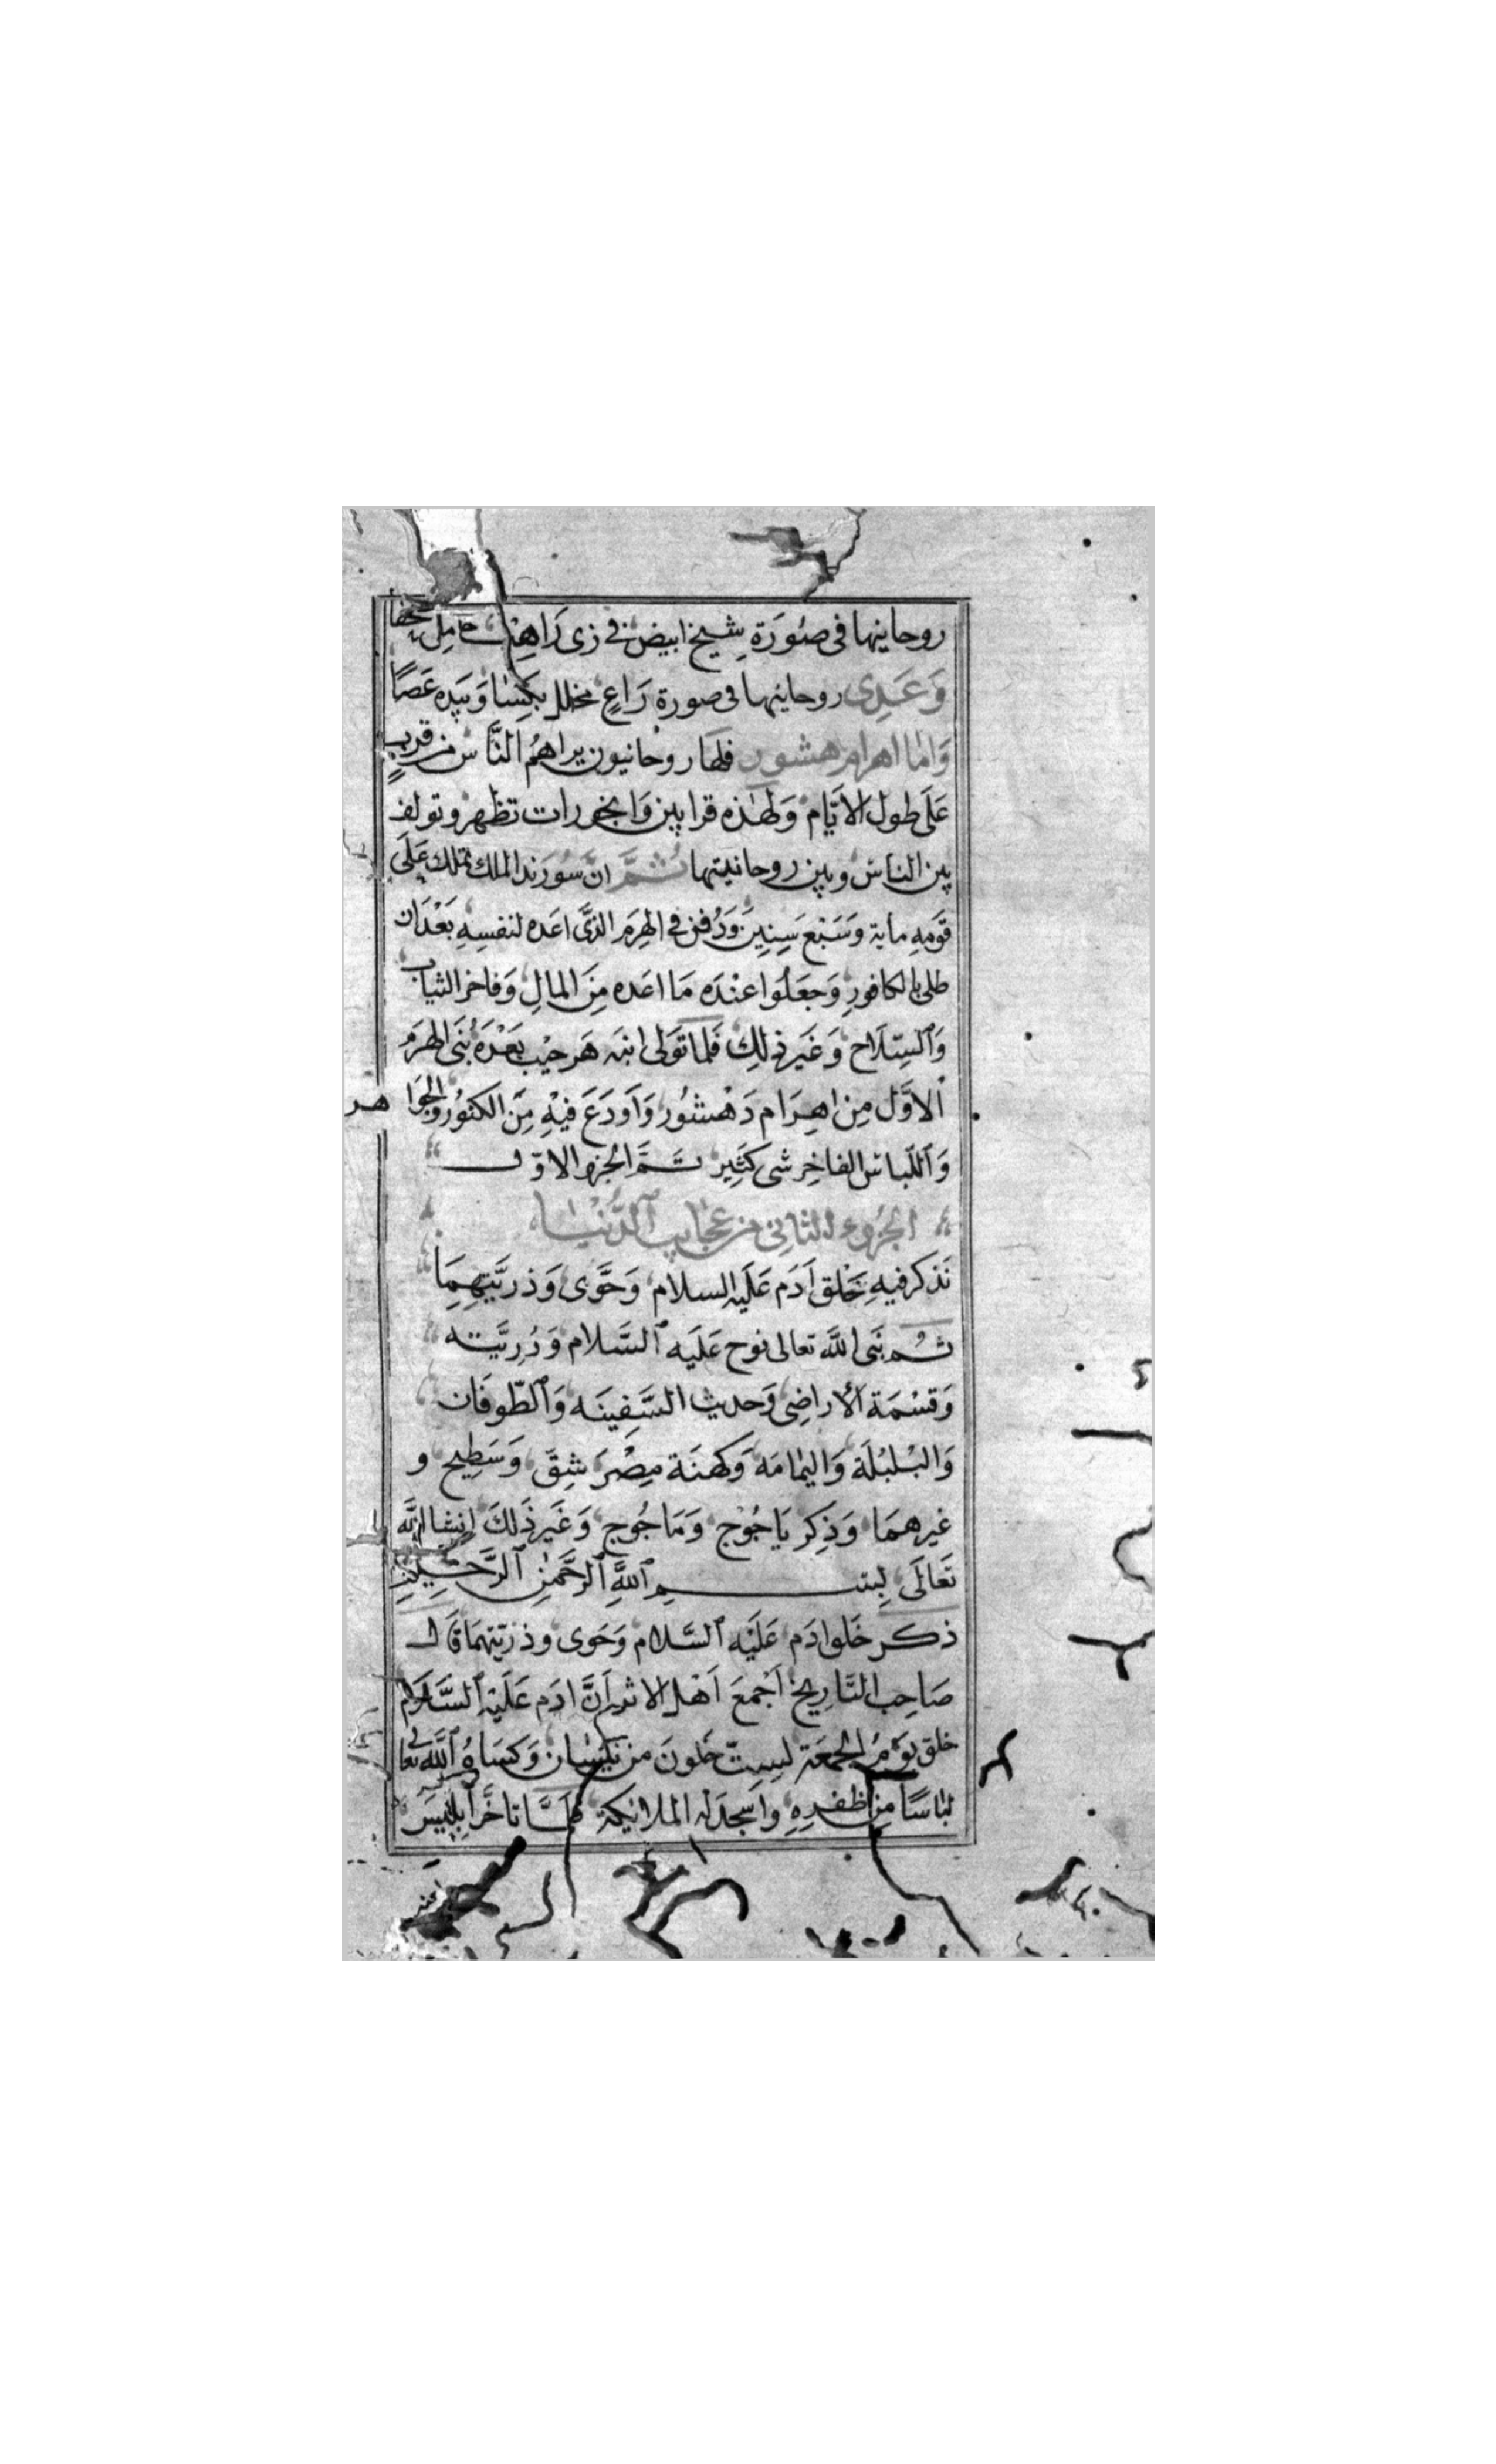 روحانيها في صُورَة شيخ ابيض في زى رَاهِب حَامِل
وَعَدِى روحانيها في صورة رَاعٍ مخلل بكِسَا وَبيَده عَصًا
وَامَا اهرام هشور فلَها روحَانيون يراهمُ النَّاس من قربٍ
عَلَى طول الاَيَّام وَلهَذه قرابين وَابخورات تظهر وتولف
بين الناس وبين روحانيتها ثُمَّ انَّ سُورَند الملك تملك عَلَى
قَومِهِ ماية وَسَبْعَ سِنِينَ وَدُفن في الهِرَم الذَّى اعَده لنفسِهِ بَعْدَان
طلى بالكافورِ وَجعَلُوا عنْدَه مَا اعَده مِنَ المالِ وَفاخر الثياب
وَٱلسِّلَاح وَغَير ذلِك فَلما تَولى ابنَه هَرجيْب بَعْدَهُ بَنَى الهرَم
الاوَّل مِن اهِرَام دَهْشُور وَاَودَعَ فيْهِ مِنَ الكنُوُر والجوَاهر
وَٱللّباس الفاخِر شى كَثِير تَمَّ الجزو الاوّل
الجُزوء الثانِى من عجَايب ٱلدُّنْيَا
نَذكر فيهِ خَلق اَدَم عَلَيه السلام وَحَوَّى وَذرِيَّتِهِمَا
ثُم نَبى اللَّه تعالى نوح عَلَيه ٱلسَّلام وَذرِيَّته
وَقسْمَة الأراضِى وَحديث السَّفِينَه وَٱلطّوفَان
وَالبْلبْلَة وَاليمَامَه وَكهنَة مِصْرَ شِقّ وَسَطِيح و
غيرهمَا وَذِكر يَاجُوْج وَمَاجُوج وَغَير ذَلكَ اِنشا اللَّه
تَعَالَى بِسم ٱللَّهِ ٱلرَّحَمنِ ٱلرَّحِيمِ
ذكر خَلو ادَم عَلَيْه ٱلسَّلام وَحَوى وذرّيتهمَا قَال
صَاحِب التَّارِيخْ اَجْمعَ اَهْل الاثر اَنَّ ادَم عَلَيْه ٱلسَّلَام
خلق يَوْمُ الجمعَة لسِتّ خلَونَ من نَيْسَان وَكسَاهُ ٱللَّه تعالى
لبَاسًا مِن ظفرهِ واسجدَ له الملائيكة فلمَّا تاخَّر اِبليسَ